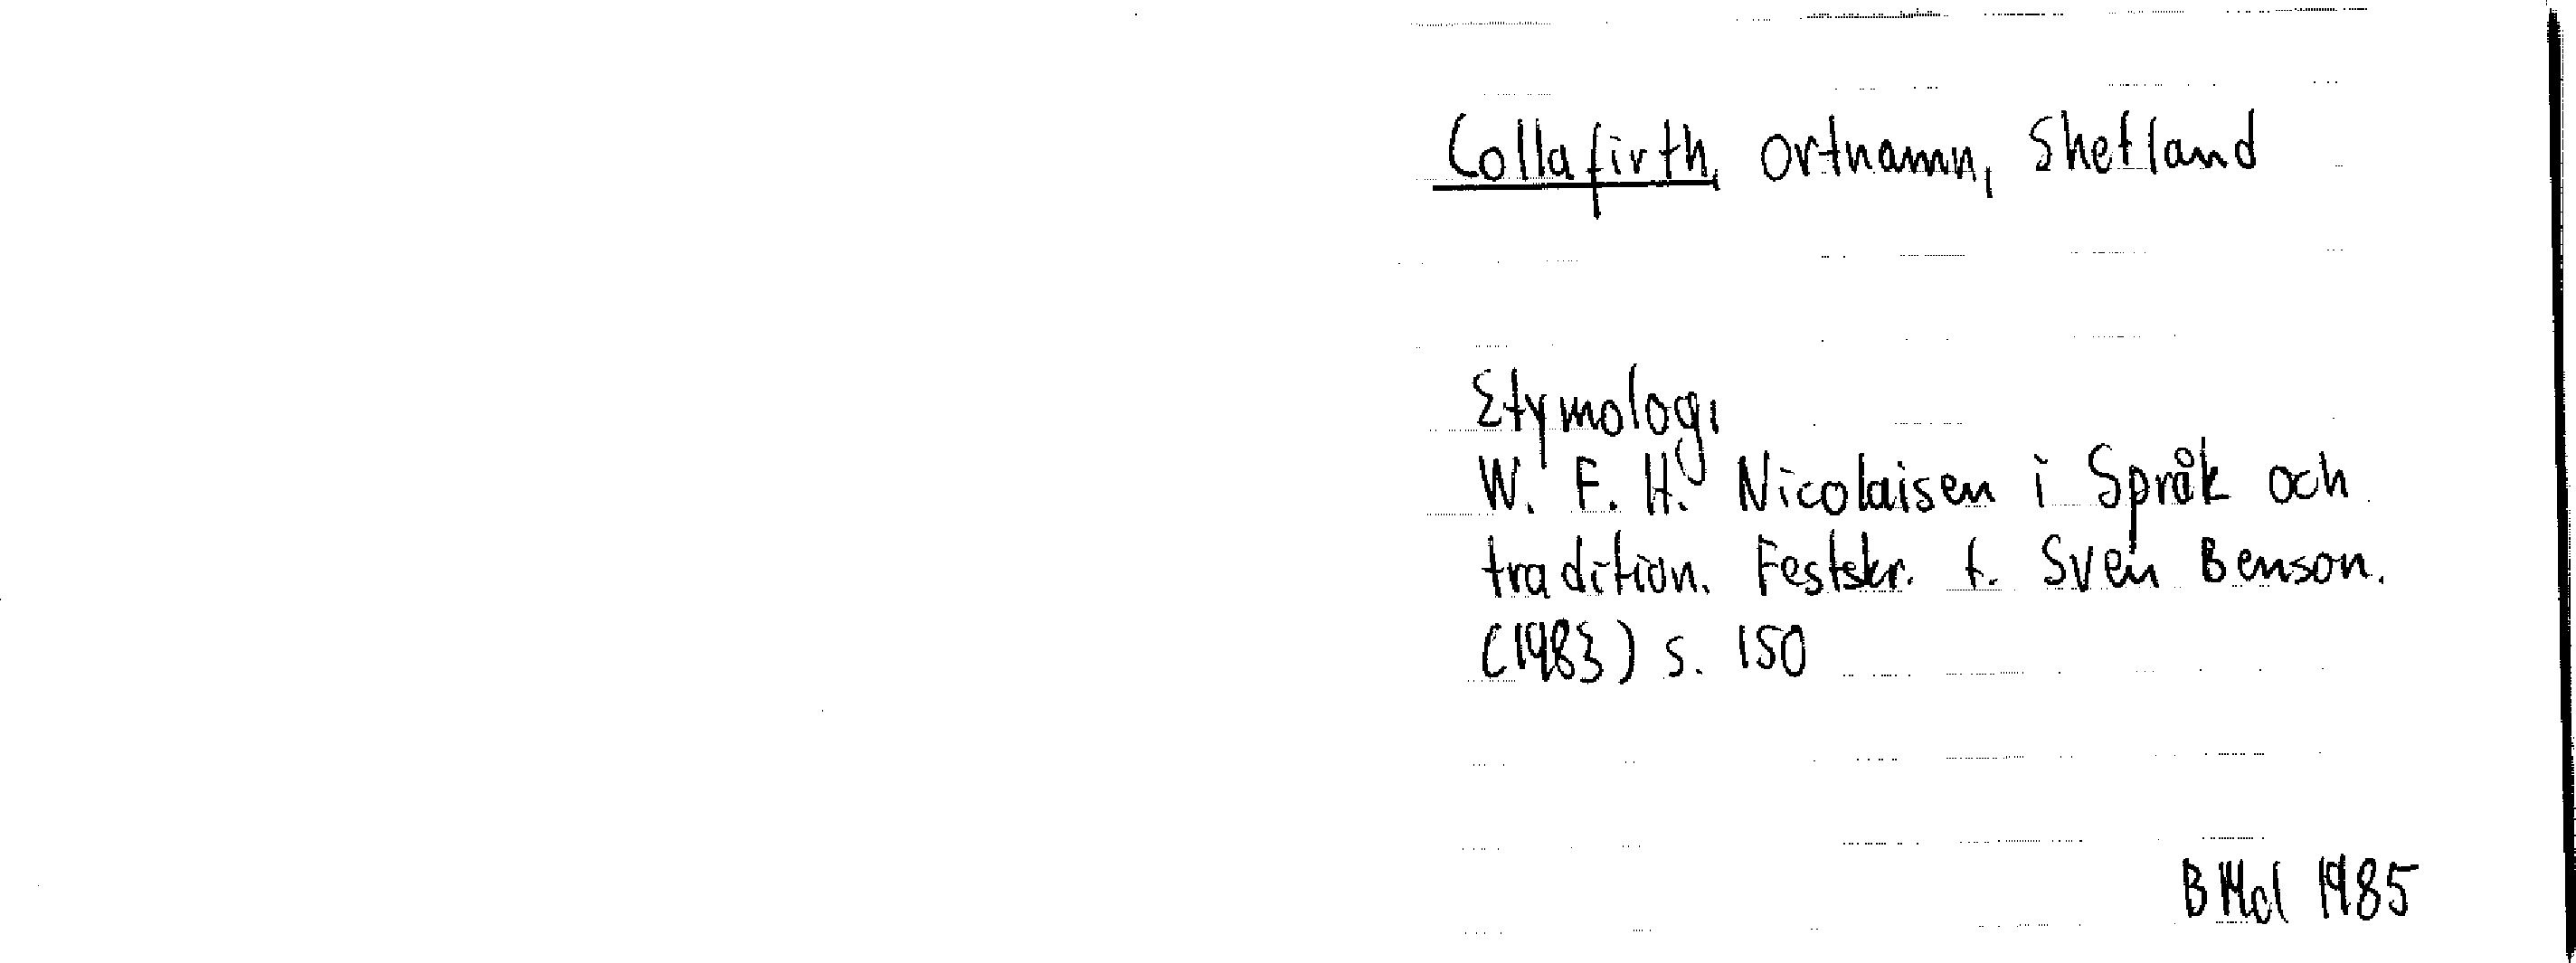 Collafirth, ortnamn, Shetland
Etymologi
W. F. H. Nicolaisen i Språk och
tradition. Festskr. t. Sven Benson.
(1983) s. 150
B Mdl 1985